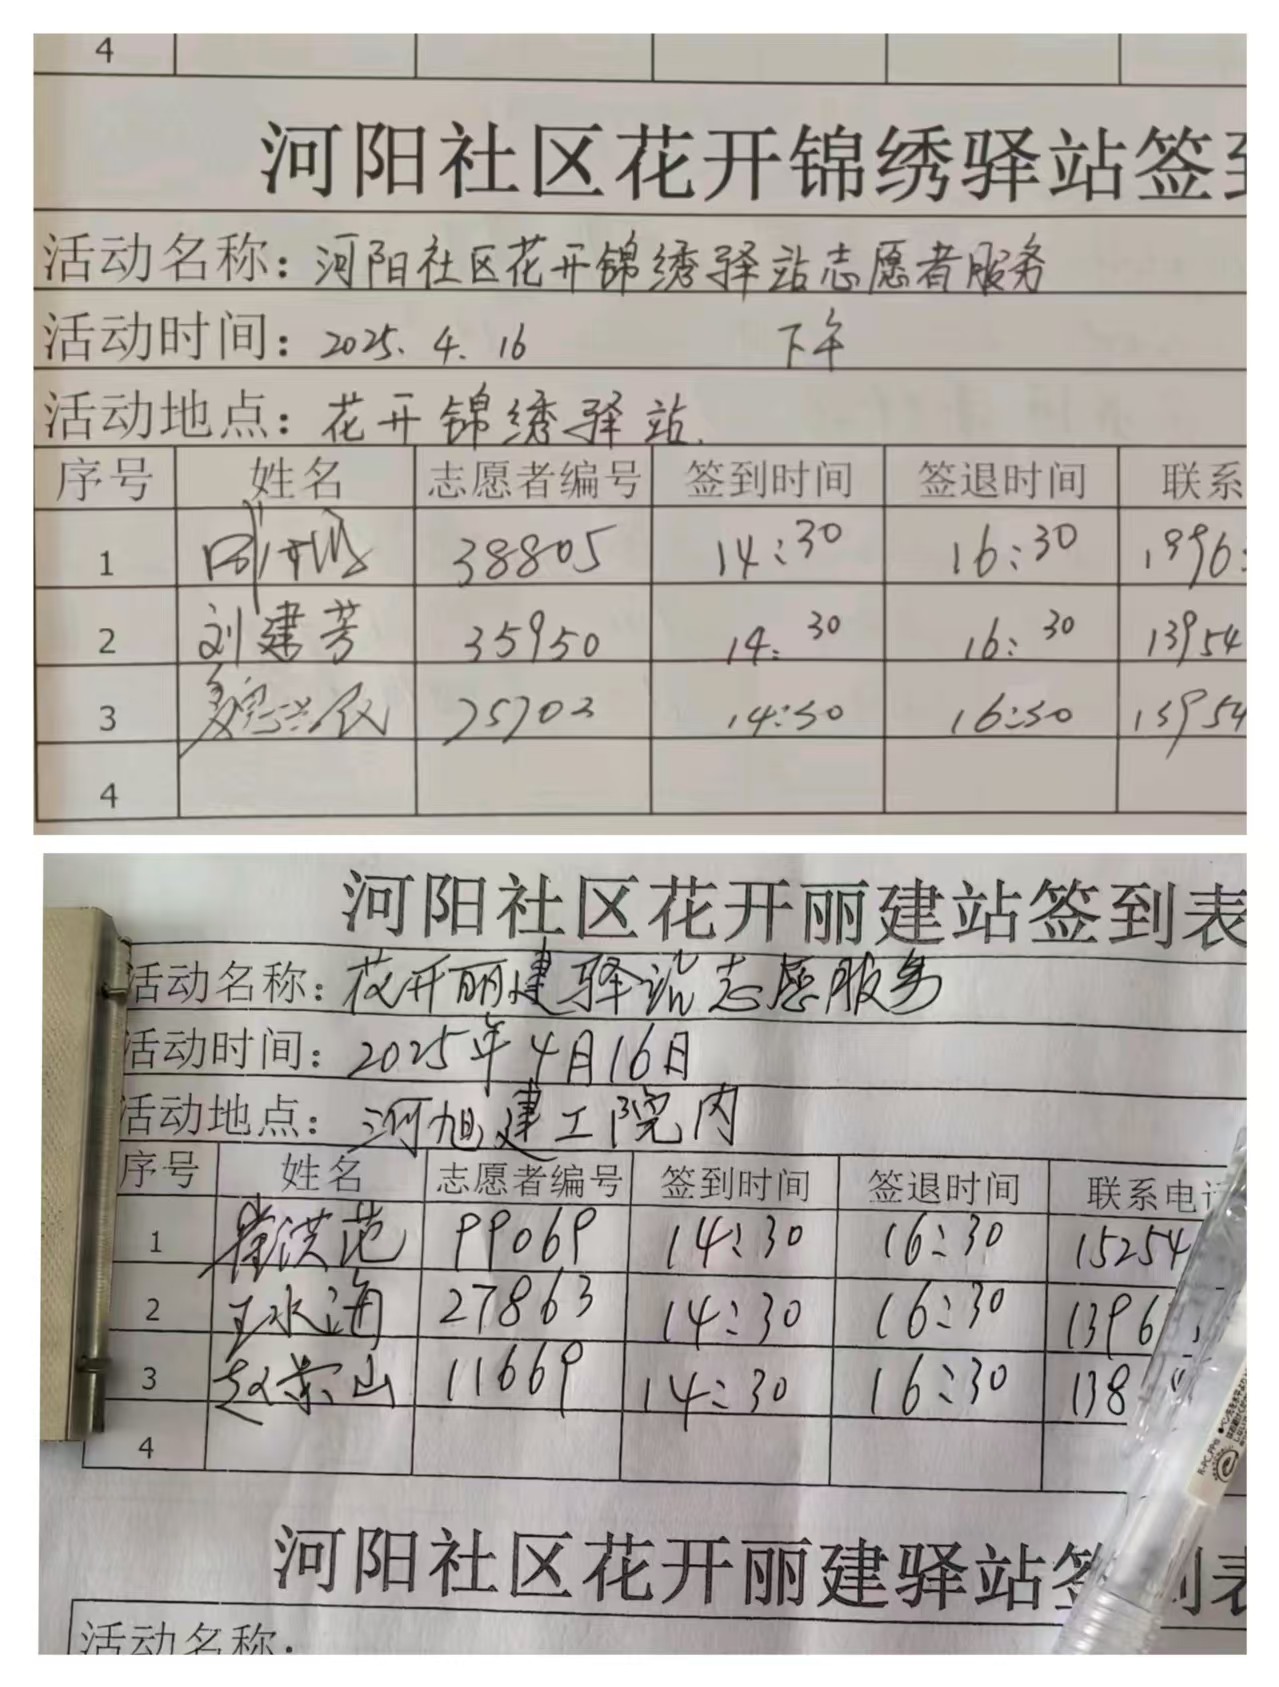 4
河阳社区花开锦绣驿站签到
活动名称：河阳社区花开锦绣驿站志愿者服务
活动时间：2025.4.16 下午
活动地点：花开锦绣驿站
序号 姓名 志愿者编号 签到时间 签退时间 联系
1 38805 14:30 16:30 1396
2 刘建芳 35950 14:30 16:30 13954
3 魏兴仪 25702 14:30 16:30 13954
4
河阳社区花开丽建站签到表
活动名称：花开丽建驿站志愿服务
活动时间：2025年4月16日
活动地点：河旭建工院内
序号 姓名 志愿者编号 签到时间 签退时间 联系电话
1 崔洪范 99069 14:30 16:30 15254
2 王水海 27863 14:30 16:30 1396
3 赵荣山 11669 14:30 16:30 138
4
河阳社区花开丽建驿站签到表
活动名称：